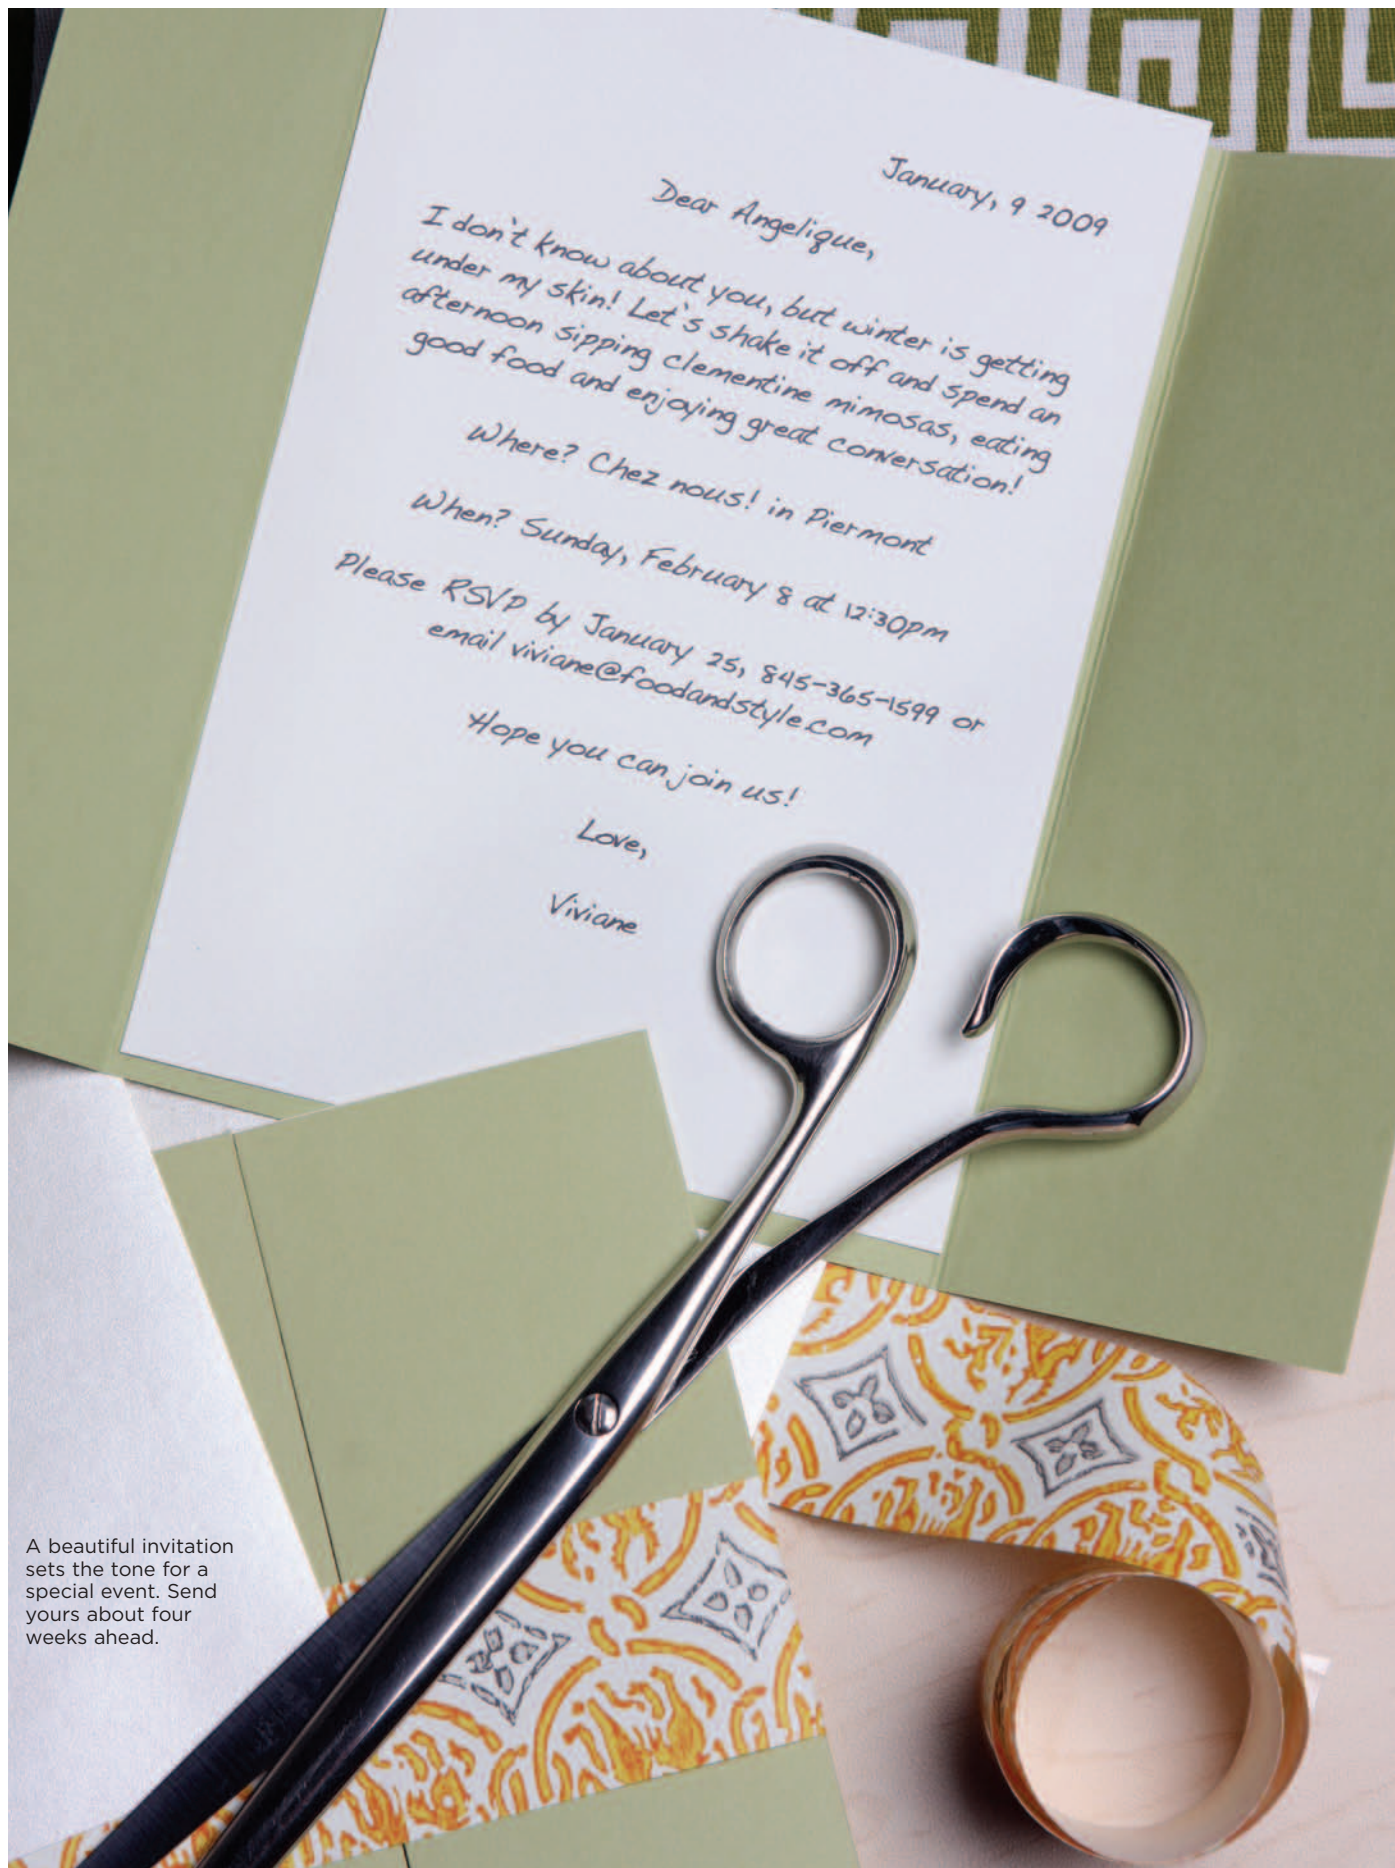 January, 9 2009
Dear Angelique,
I don't know about you, but winter is getting
under my skin! Let's shake it off and spend an
afternoon sipping clementine mimosas, eating
good food and enjoying great conversation!
Where? Chez nous! in Piermont
When? Sunday, February 8 at 12:30pm
Please RSVP by January 25, 845-365-1599 or
email viviane@foodandstyle.com
Hope you can join us!
Love,
Viviane
A beautiful invitation
sets the tone for a
special event. Send
yours about four
weeks ahead.